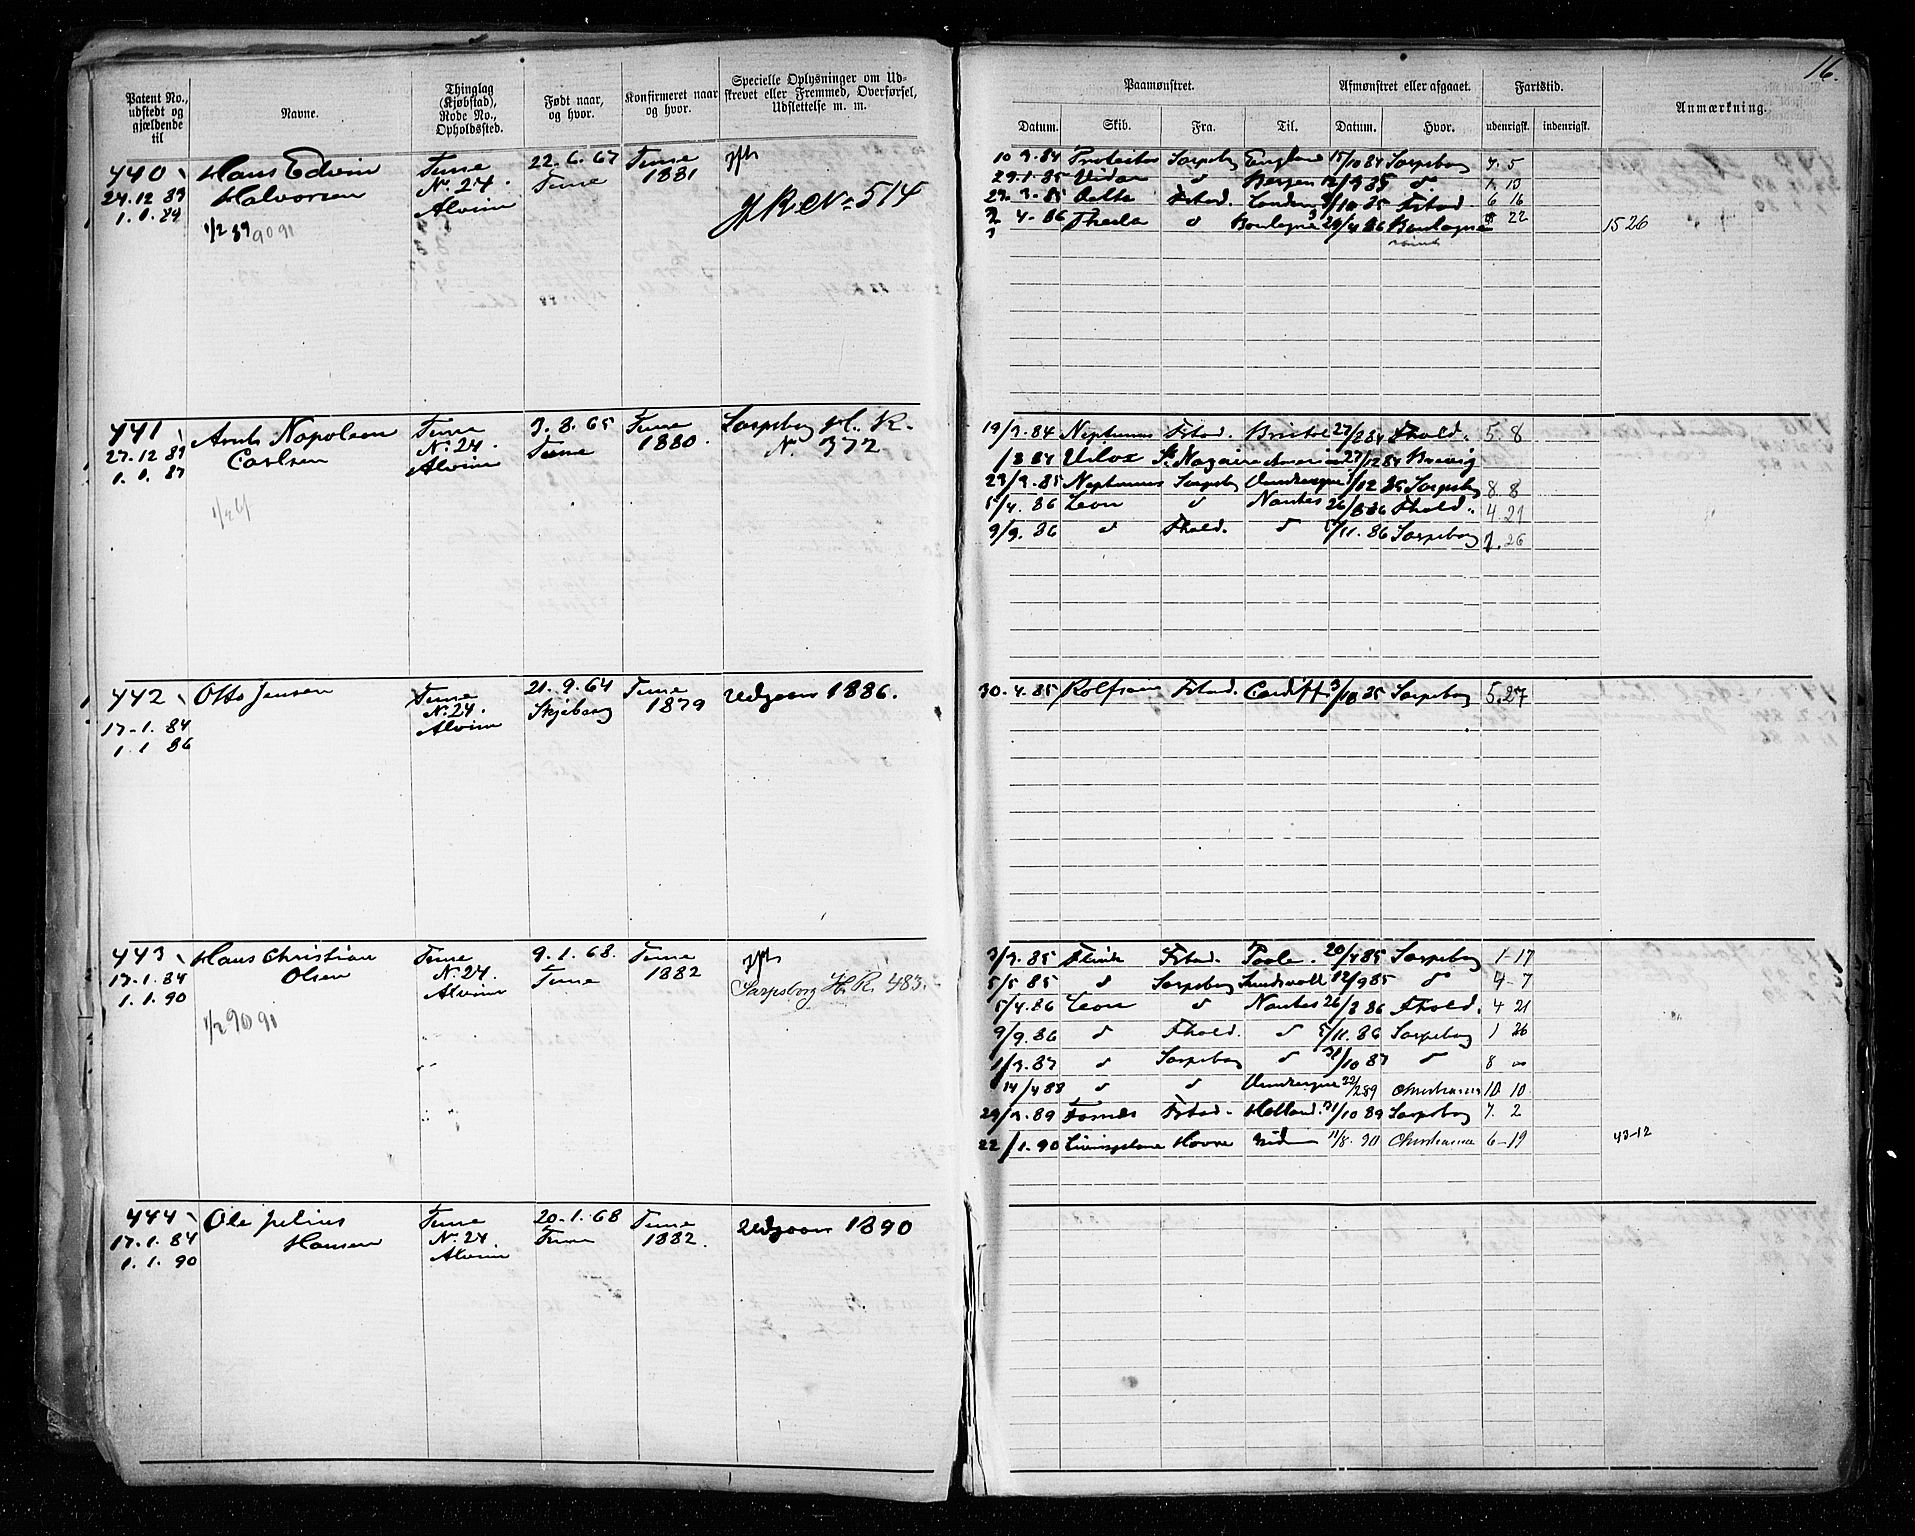 16.
Patent No., udstedt og gjældende til
Navne.
Thinglag (Kjøbstad), Rode No., Opholdssted.
Født naar, og hvor.
Konfirmeret naar og hvor.
Specielle Oplysninger om Udskrevet eller Fremmed, Overførsel, Udslettelse m. m.
Paamønstret.
Afmønstret eller afgaaet.
Fartstid.
Anmærkning.
Datum. Skib. Fra. Til. Datum. Hvor. udenrigsk. indenrigsk.
440 Hans Edvin Tune 22.6.67 Tune
24.12 83 Halvorsen No. 24. Tune 1881
1.1.84 Alvim
1/2 89 90 91
H.R. No. 514
10 3.84 Sarpsbg England 15/10 84 Sarpsborg 7. 5
29.1.85 Vidar d Bergen 12/3 85 d 1. 13
Fstad. London 10 85 Fstad. 6 16
4.86 Theda d Boulogne 4 86 Boulogne 22
1526
441 Arnt Napoleon Tune 3.8.65 Tune Sarpsborg H. R.
27.12 83 Carlsen No. 24. Tune 1880. N. 372
1.1.87 Alvim
19/3.84 Neptunus Fstad. Bristol 27/8 84 Fhold. 5 8
/8 84 Velox St. Nazaire 27/12 84 Brevig
29/3.85 Neptunus Sarpsbg 12 85 Sarpsbg 8 8
5/4.86 Leon d Nantes 26/8 86 Fhold. 4 21
9/9.86 d Fhold. d 5/11.86 Sarpsborg 1. 26
442 Otto Jensen Tune 21.9.64 Tune Udgaar 1886.
17.1.84 No. 24. Skjeberg 1879
1.1 86 Alvim
30.4.85 Rolfsøen Fstad. Cardiff 3/10 85 Sarpsborg 5.27
443 Hans Christian Tune 9.1.68. Tune
17.1.84 Olsen No. 24. Tune 1882 Sarpsborg H. R. 483.
1.1.90 Alvim
1/2 90 91
3/3.85 Flink Fstad. Poole. 20/4 85 Sarpsborg 1-17
5/5 85 d Sarpsborg Sundsvall 12/9 85 d 4-7
5/4.86 Leon d Nantes 26/8 86 Fhold. 4 21
9/9.86 d Fhold. d 5/11.86 Sarpsborg 1 26
1/3.87 d Sarpsborg d 31/10 87 d 8 "
14/4 88 d d 22/2 89 Christiania 10 10
29/3.89 Farnæs Fstad. Holland. 31/10 89 Sarpsborg 7. 2
22/1.90 Livingstone Havre 11/8.90 Christiania 6-19
43-12
444 Ole Julius Tune 20.1.68 Tune Udgaar 1890
17.1.84 Hansen No. 24 Tune 1882.
1.1.90 Alvim